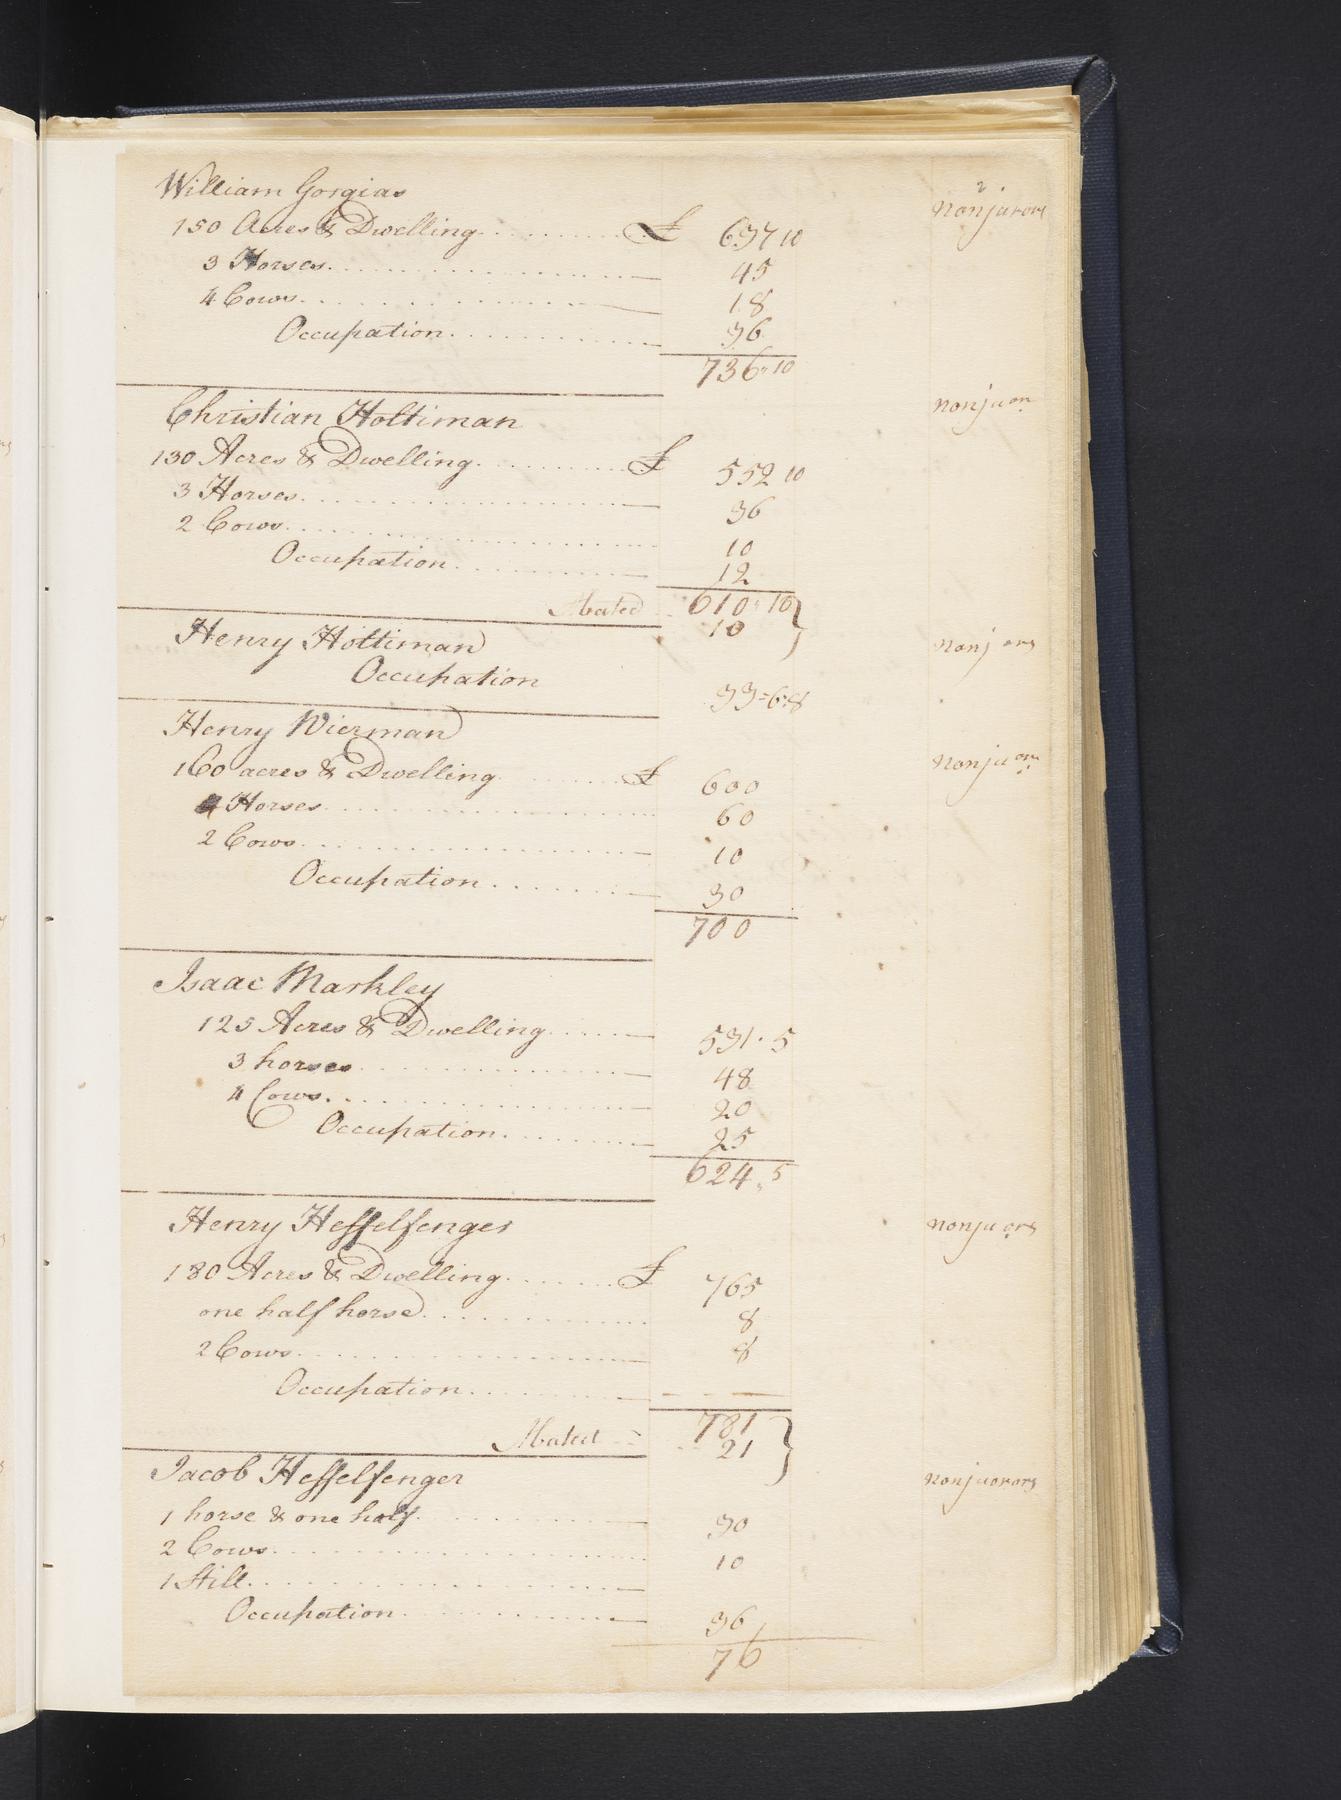 William Gorgias
2
nonjurors
150 Acres & Dwelling £ 637 10
3 Horses 45
4 Cows 18
Occupation 36
736 " 10
Christian Holtiman nonju on
130 Acres & Dwelling £ 552 10
3 Horses 36
2 Cows 10
Occupation 12
Abated 610 " 10
10
Henry Holtiman nonj ors
Occupation 33 = 6 = 8
Henry Wierman
nonju ors
160 acres & Dwelling £ 600
4 Horses 60
2 Cows 10
Occupation 30
700
Isaac Markley
125 Acres & Dwelling 531 . 5
3 horses 48
4 Cows 20
Occupation 25
624 " 5
Henry Heffelfenger nonju ors
180 Acres & Dwelling £ 765
one half horse 8
2 Cows 8
Occupation — —
Abated 781
21
Jacob Heffelfenger nonjuorors
1 horse & one half 30
2 Cows 10
1 Still
Occupation 36
76